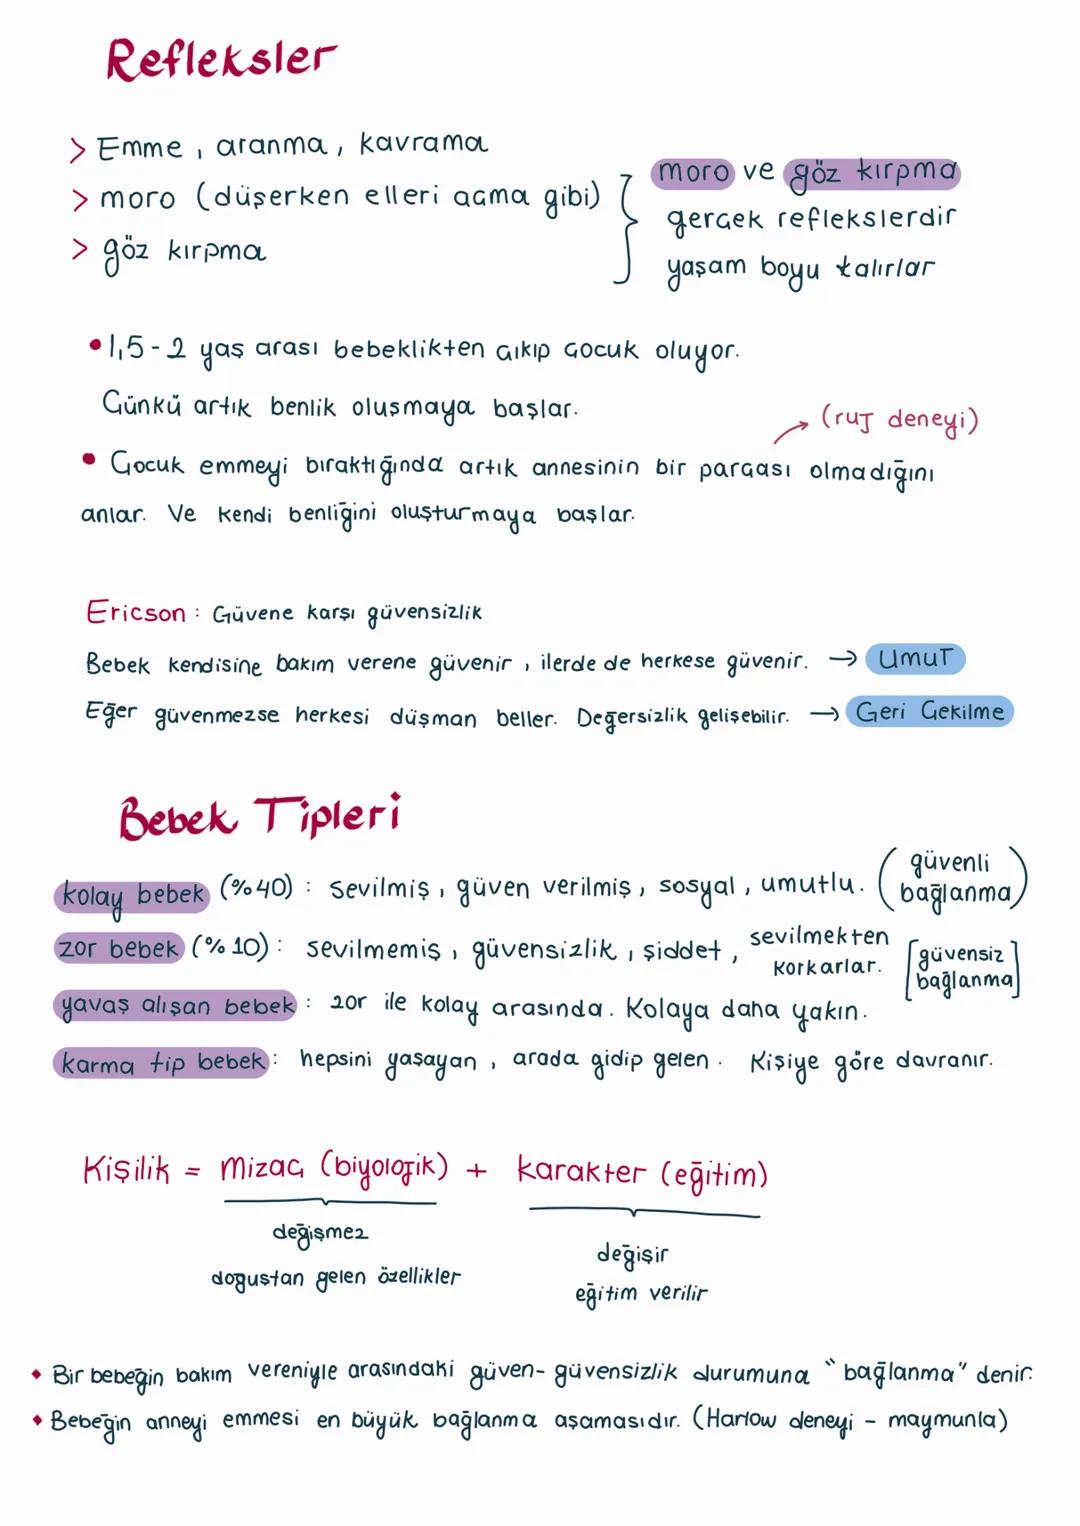 Refleksler
> Emme, aranma, kavrama
> moro (düşerken elleri açma gibi)
> göz kırpma
moro ve göz kırpma
gerçek reflekslerdir
yaşam boyu kalırlar
• 1,5-2 yaş arası bebeklikten çıkıp çocuk oluyor.
Çünkü artık benlik oluşmaya başlar.
(ruj deneyi)
• Çocuk emmeyi bıraktığında artık annesinin bir parçası olmadığını
anlar. Ve kendi benliğini oluşturmaya başlar.
Ericson: Güvene karşı güvensizlik
Bebek kendisine bakım verene güvenir, ilerde de herkese güvenir. → Umut
Eğer güvenmezse herkesi düşman beller. Değersizlik gelişebilir. → Geri Çekilme
Bebek Tipleri
kolay bebek (%40): sevilmiş, güven verilmiş, sosyal, umutlu. (güvenli bağlanma)
zor bebek (%10): sevilmemiş, güvensizlik, şiddet, sevilmekten korkarlar. [güvensiz bağlanma]
yavaş alışan bebek: zor ile kolay arasında. Kolaya daha yakın.
karma tip bebek: hepsini yaşayan, arada gidip gelen. Kişiye göre davranır.
Kişilik = mizaç (biyolojik) + karakter (eğitim)
değişmez
doğuştan gelen özellikler
değişir
eğitim verilir
• Bir bebeğin bakım vereniyle arasındaki güven-güvensizlik durumuna "bağlanma" denir.
• Bebeğin anneyi emmesi en büyük bağlanma aşamasıdır. (Harlow deneyi - maymunla)